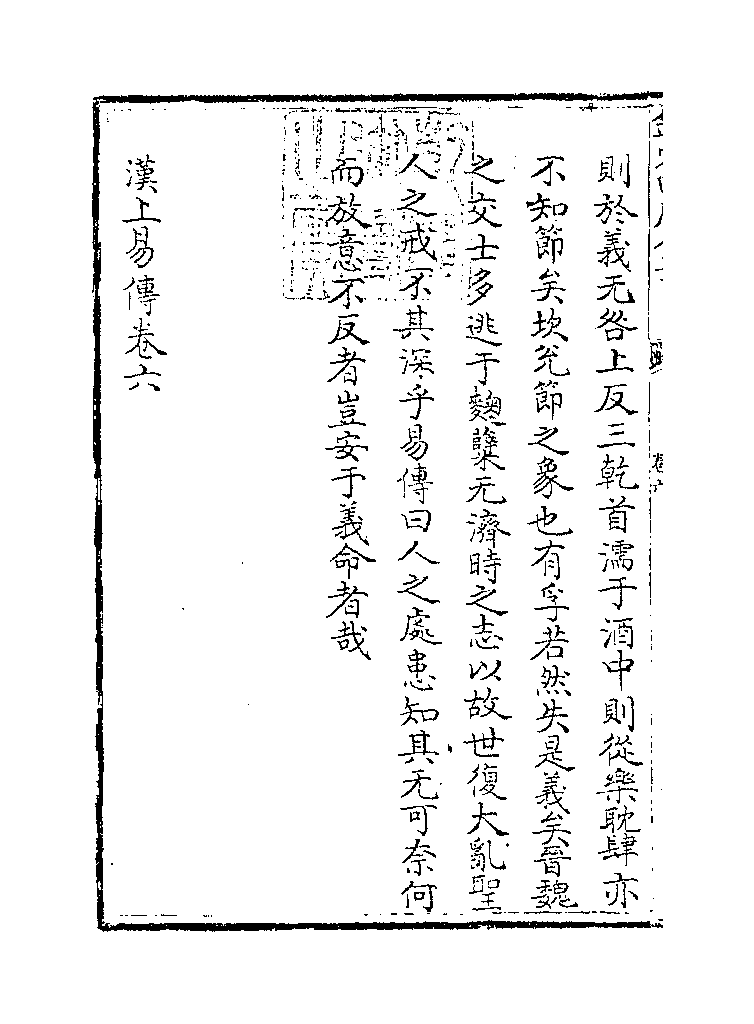 則於義无咎上反三乾首濡于酒中則從樂耽肆亦
不知節矣坎兊節之象也有孚若然失是義矣晉魏
之交士多逃于麴糵无濟時之志以故世復大亂聖
人之戒不其深乎易傳曰人之處患知其无可奈何
而放意不反者豈安于義命者哉
漢上易傳卷六